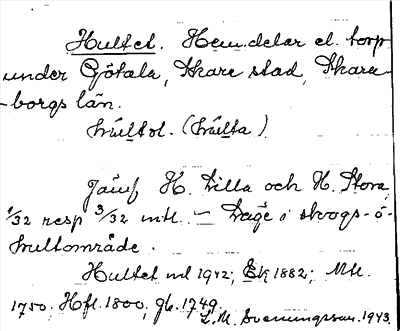 Hultet. Hemdelar el. torp
under Götala, Skara stad, Skara-
borgs län.
Hultet. (Hulta)
Jämf H. Lilla och H. Stora,
1/32 resp 3/32 mtl. — Läge i skogs- o-
hultområde.
Hultet 1942; Ek 1882; Mtl.
1750. Hfl. 1800, 1749.
L. M. Svenungsson. 1943.